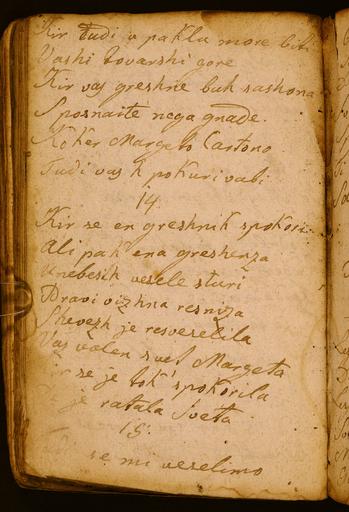 Kir tudi v paklu more biti
Vashi tovarshi gore
Kir vas greshne buh sashona
Sposnaite nega gnade.
Koker Margeto Cartono
Tudi vas k pokuri vabi
14
Kir se en greshnik spokori
Ali pak ena greshenza
Unebesih vesele sturi
Pravi vizhna resniza
Zhevezh je resveselila
Vas volen svet Margeta
Kir se je tok spokorila
je ratala Sveta
15.
se mi veselimo